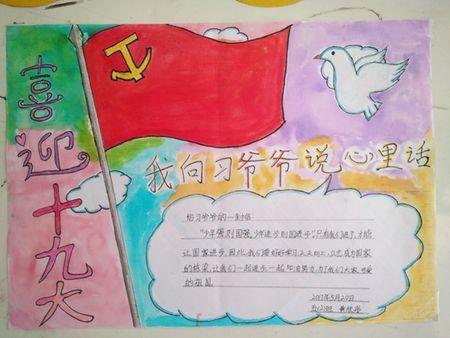 喜迎十九大
我向习爷爷说心里话
给习爷爷的一封信:
"少年强则国强,少年进步则国进步"只有我们进了,才能
让国家进步。因此,我们要好好学习,天天向上,立志成为国家
的栋梁,让我们一起进步,一起加油努力,为了我们大家,可爱
的祖国
2017年5月20日